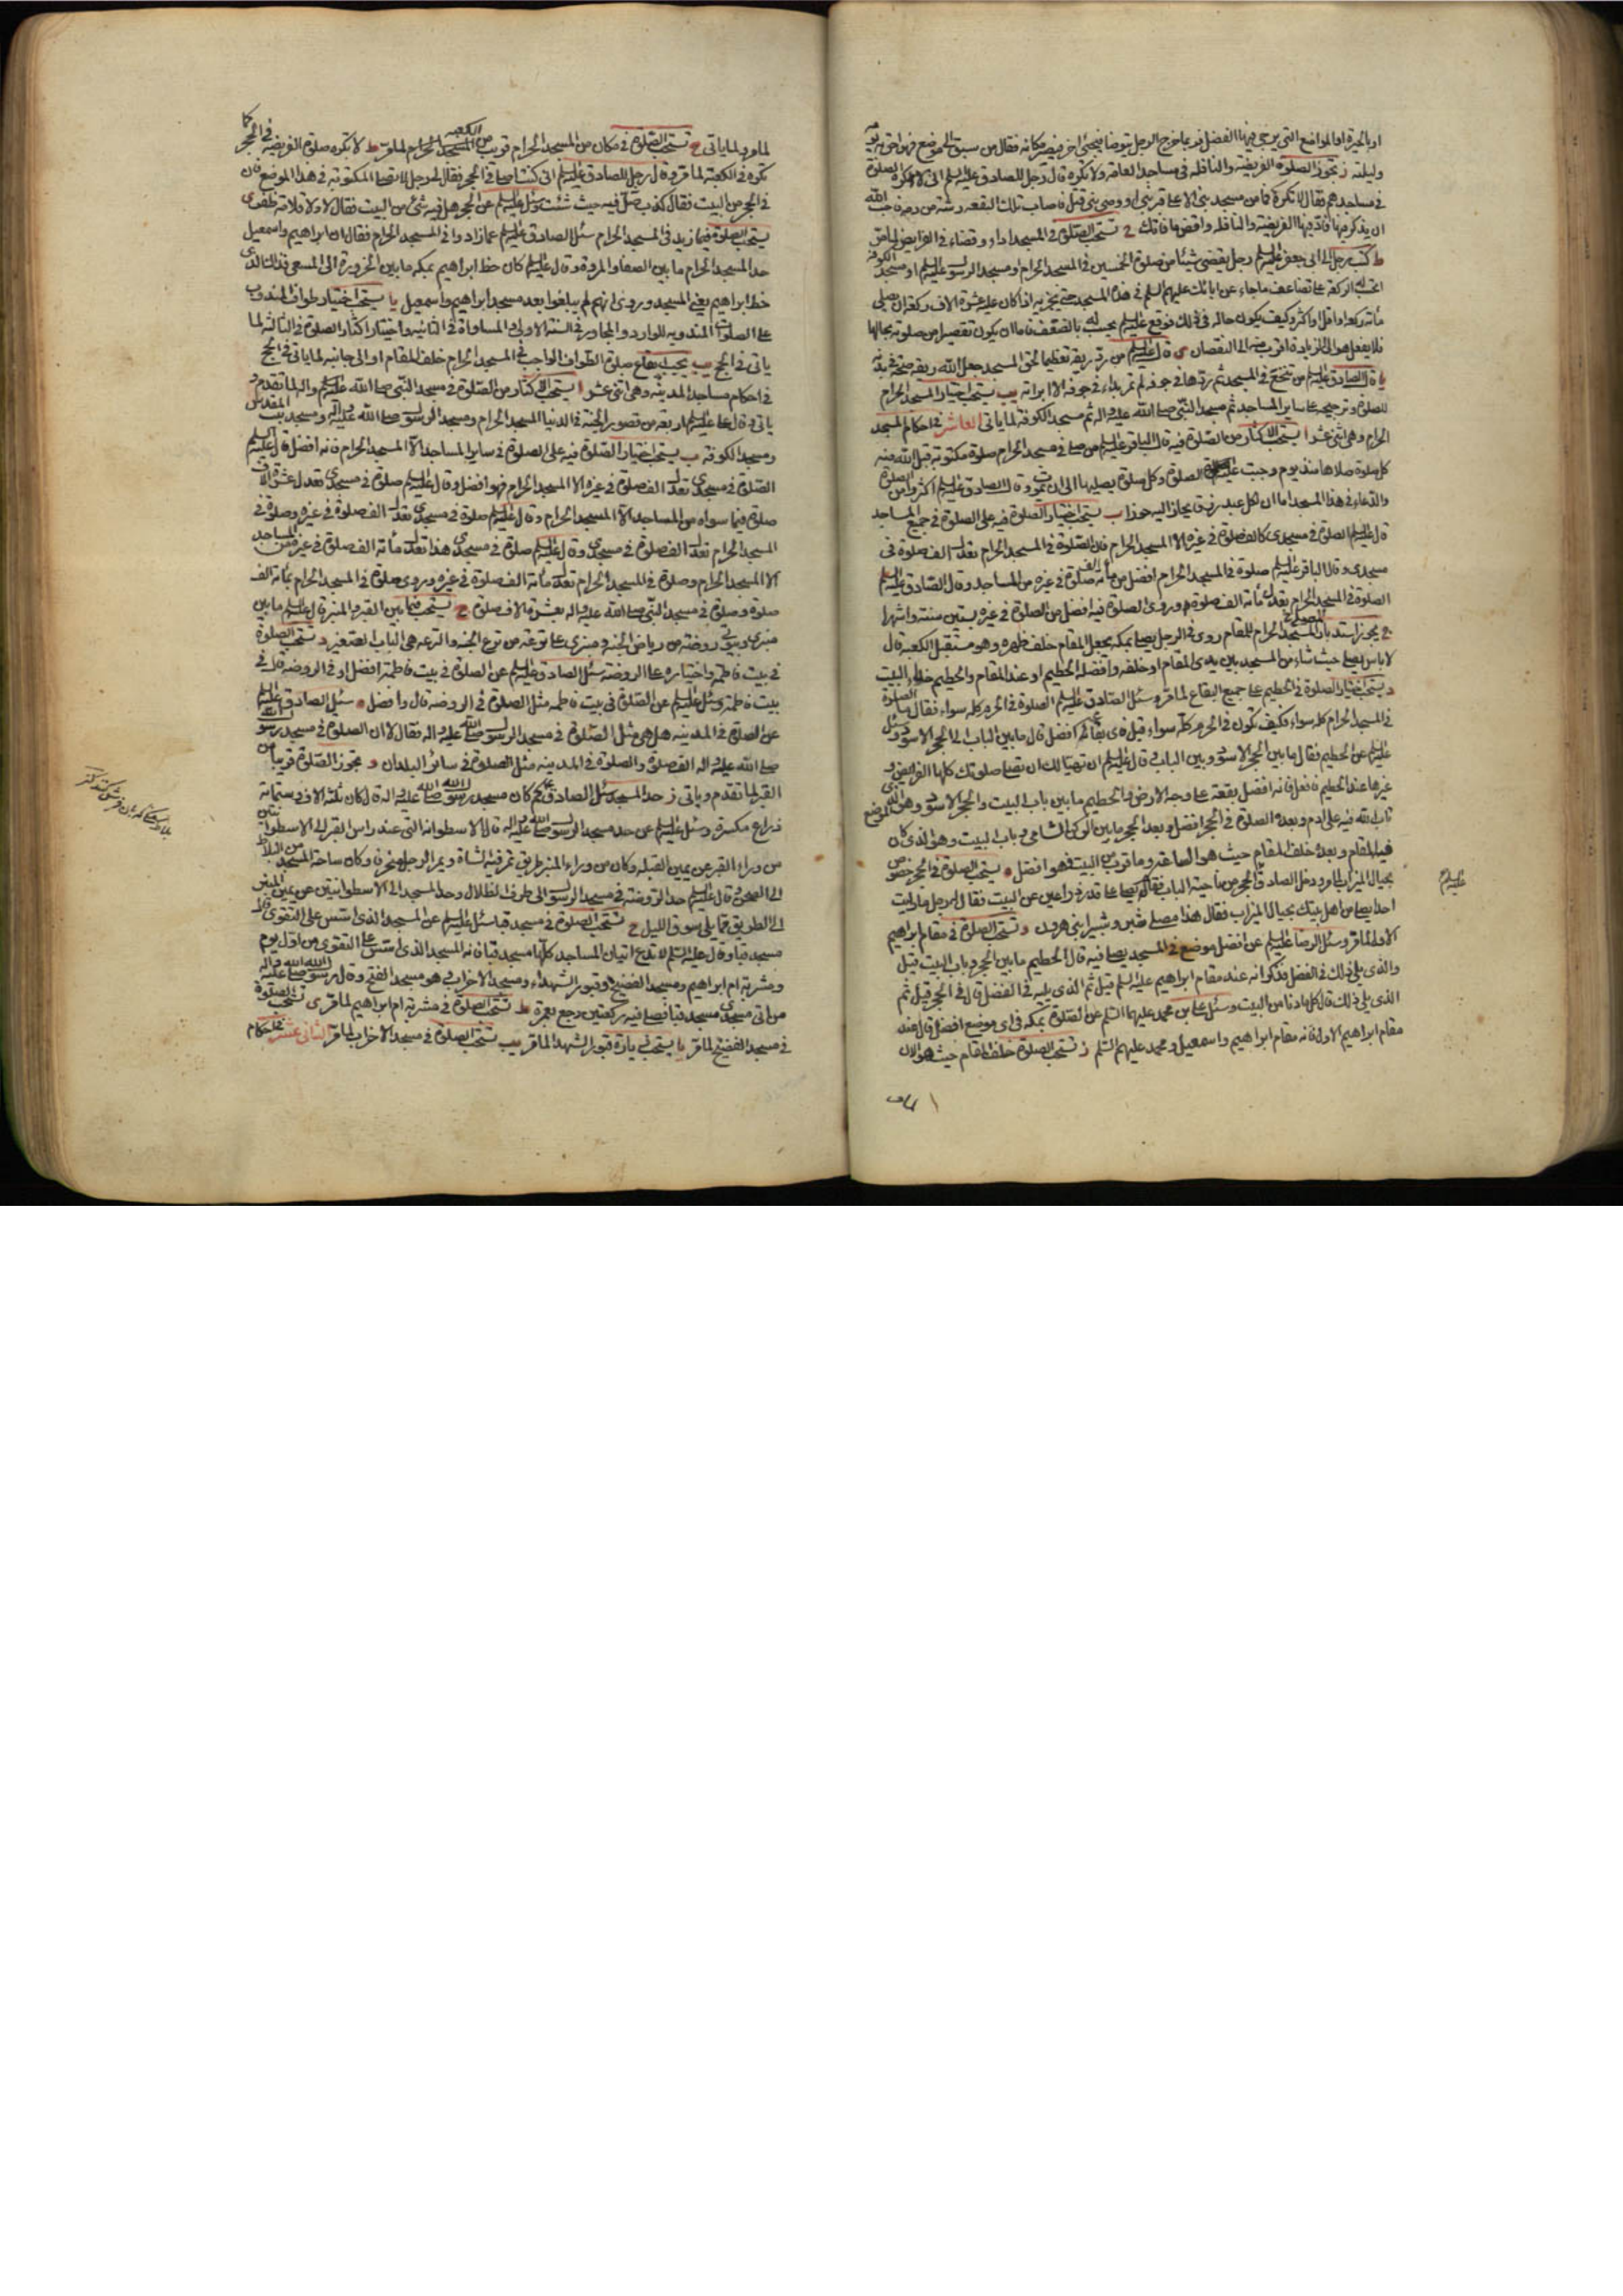 او بالحيرة او المواضع التى يرجى فيها الفضل فربما خرج الرجل يتوضأ فيجئ اخر فيصير مكانه فقال من سبق الى موضع فهو احق به يومه
وليلته ز تجوز الصلوة الفريضة والنافلة فى مساجد العامة ولا تكره قال رجل للصادق عليه السلم انى لاكره الصلوة
فى مساجدهم فقال لا تكره فما من مسجد بنى الا على قبر نبى او وصى نبى قتل فاصاب تلك البقعة رشة من دمه فاحب الله
ان يذكر فيها فاد فيها الفريضة والنافلة واقض ما فاتك ح تستحب الصلوة فى المسجد اداء وقضاء فى الفرايض لما مر
ط كتب رجل الى ابى جعفر عليه السلم رجل يقضى شيئا من صلوة الخمسين فى المسجد الحرام او مسجد الرسول عليه السلم او مسجد الكوفة
اتحسب له الركعة على تضاعف ما جاء عن ابائك عليهم السلم فى هذه المسجد حتى يجزيه اذا كان عليه عشرة الاف ركعة ان يصلى
مأة ركعة او اقل او اكثر وكيف يكون حاله فى ذلك فوقع عليه السلم يحسب له بالضعف فاما ان يكون تقصيرا من صلوته بحالها
فلا يفعل هو الى الزيادة اقرب منه الى النقصان ى قال عليه السلم من رد ريقه تعظيما لحق المسجد جعل الله ريقه صحة فى بدنه
يا قال الصادق عليه السلم من تنخع فى المسجد ثم ردها فى جوفه لم تمر بداء فى جوفه الا ابرأته يب يستحب اختيار المسجد الحرام
للصلوة وترجيحه على ساير المساجد ثم مسجد النبى صلى الله عليه واله ثم مسجد الكوفة لما ياتى العاشر فى احكام المسجد
الحرام وهى اثنى عشر ا يستحب الاكثار من الصلوة فيه قال الباقر عليه السلم من صلى فى مسجد الحرام صلوة مكتوبة قبل الله منه
كل صلوة صلاها منذ يوم وجبت عليه الصلوة وكل صلوة يصليها الى ان يموت وقال الصادق عليه السلم اكثروا من الصلوة
والدعاء فى هذا المسجد اما ان لكل عبد رزقا يحاز اليه حوزا ب يستحب اختيار الصلوة فيه على الصلوة فى جميع المساجد
قال عليه السلم الصلوة فى مسجدى كالف صلوة فى غيره الا المسجد الحرام فان الصلوة فى المسجد الحرام تعدل الف صلوة فى
مسجدى وقال الباقر عليه السلم صلوة فى المسجد الحرام افضل من مأة الف صلوة فى غيره من المساجد وقال الصادق عليه السلم
الصلوة فى المسجد الحرام تعدل مأة الف صلوة وروى الصلوة فيه افضل من الصلوة فى غيره بستين سنة واشهرا
ج يجوز استدبار المصلى فى المسجد الحرام للمقام روى فى الرجل يصلى بمكة يجعل المقام خلف ظهره وهو مستقبل الكعبة قال
لا باس يصلى حيث شاء من المسجد بين يدى المقام او خلفه وافضله الحطيم او عند المقام والحطيم حذاء البيت
د يستحب اختيار الصلوة فى الحطيم على جميع البقاع لما مر وسئل الصادق عليه السلم الصلوة فى الحرم كله سواء فقال ما الصلوة
فى المسجد الحرام كله سواء فكيف تكون فى الحرم كله سواء قيل فاى بقاعه افضل قال ما بين الباب الى الحجر الاسود وسئل
عليه السلم عن الحطيم فقال ما بين الحجر الاسود وبين الباب وقال عليه السلم ان تهيأ لك ان تصلى صلوتك كلها الفرايض و
غيرها عند الحطيم فافعل فانه افضل بقعة على وجه الارض والحطيم ما بين باب البيت والحجر الاسود وهو الموضع الذى
تاب الله فيه على ادم وبعده الصلوة فى الحجر افضل وبعد الحجر ما بين الركن الشامى وباب البيت وهو الذى كان
فيه المقام وبعده خلف المقام حيث هو الساعة وما قرب من البيت فهو افضل ه يستحب الصلوة فى الحجر خصوصا
بحيال الميزاب لما مر ودخل الصادق الحجر من ناحية الباب فقام يصلى على قدر ذراعين من البيت فقال الرجل ما رايت
احدا يصلى من اهل بيتك بحيال الميزاب فقال هذا مصلى شبر وشبير ابنى هرون و تستحب الصلوة فى مقام ابراهيم
الاول لما مر وسئل الرضا عليه السلم عن افضل موضع فى المسجد يصلى فيه قال الحطيم ما بين الحجر وباب البيت قيل
والذى يلى ذلك فى الفضل فذكر انه عند مقام ابراهيم عليه السلم قيل ثم الذى يليه فى الفضل قال فى الحجر قيل ثم
الذى يلى ذلك قال كل ما دنا من البيت وسئل على بن محمد عليهما السلم عن الصلوة بمكة فى اى موضع افضل قال عند
مقام ابراهيم الاول فانه مقام ابراهيم واسمعيل ومحمد عليهم السلم ز تستحب الصلوة خلف المقام حيث هو الان
لما مر
عليه السلم
لما مر ولما ياتى ح تستحب الصلوة فى مكان من المسجد الحرام قريب من الكعبة لما مر ط لا تكره صلوة الفريضة فى الحجر كما
تكره فى الكعبة لما مر وقال رجل للصادق عليه السلم انى كنت اصلى فى الحجر فقال لى رجل لا تصل المكتوبة فى هذا الموضع فان
فى الحجر من البيت فقال كذب صل فيه حيث شئت وسئل عليه السلم عن الحجر هل فيه شئ من البيت فقال لا ولا قلامة ظفر ى
يستحب الصلوة فيما زيد فى المسجد الحرام سئل الصادق عليه السلم عما زادوا فى المسجد الحرام فقال ان ابراهيم واسمعيل
حدا المسجد الحرام ما بين الصفا والمروة وقال عليه السلم كان خط ابراهيم بمكة ما بين الحزورة الى المسعى فذلك الذى
خط ابراهيم يعنى المسجد وروى انهم لم يبلغوا بعد مسجد ابراهيم واسمعيل يا يستحب اختيار طواف المندوب
على الصلوات المندوبة للوارد والمجاور فى السنة الاولى والمساواة فى الثانية واختيار اكثار الصلوة فى الثالثة لما
ياتى فى الحج يب يجب ايقاع صلوة الطواف الواجب فى المسجد الحرام خلف المقام او الى جانبه لما ياتى فى الحج
فى احكام مساجد المدينة وهى اثنى عشر ا يستحب الاكثار من الصلوة فى مسجد النبى صلى الله عليه واله لما تقدم و
ياتى وقال على عليه السلم اربعة من قصور الجنة فى الدنيا المسجد الحرام ومسجد الرسول صلى الله عليه واله ومسجد بيت المقدس
ومسجد الكوفة ب يستحب اختيار الصلوة فيه على الصلوة فى ساير المساجد الا المسجد الحرام فانه افضل قال عليه السلم
الصلوة فى مسجدى تعدل الف صلوة فى غيره الا المسجد الحرام فهو افضل وقال عليه السلم صلوة فى مسجدى تعدل عشرة الاف
صلوة فيما سواه من المساجد الا المسجد الحرام وقال عليه السلم صلوة فى مسجدى تعدل الف صلوة فى غيره وصلوة فى
المسجد الحرام تعدل الف صلوة فى مسجدى وقال عليه السلم صلوة فى مسجدى هذا تعدل مأة الف صلوة فى غيره من المساجد
الا المسجد الحرام وصلوة فى المسجد الحرام تعدل مأة الف صلوة فى غيره وروى صلوة فى المسجد الحرام بمأة الف
صلوة وصلوة فى مسجد النبى صلى الله عليه واله بعشرة الاف صلوة ج يستحب فيما بين القبر والمنبر قال عليه السلم ما بين
منبرى وبيوتى روضة من رياض الجنة ومنبرى على ترعة من ترع الجنة والترعة هى الباب الصغير د تستحب الصلوة
فى بيت فاطمة واختياره على الروضة سئل الصادق عليه السلم عن الصلوة فى بيت فاطمة افضل او فى الروضة قال فى
بيت فاطمة وسئل عليه السلم عن الصلوة فى بيت فاطمة مثل الصلوة فى الروضة قال وافضل ه سئل الصادق عليه السلم
عن الصلوة فى المدينة هل هى مثل الصلوة فى مسجد الرسول صلى الله عليه واله فقال لا ان الصلوة فى مسجد رسول الله
صلى الله عليه واله الف صلوة والصلوة فى المدينة مثل الصلوة فى سائر البلدان و تجوز الصلوة قريبا من
القبر لما تقدم وياتى ز حد المسجد سئل الصادق كم كان مسجد رسول الله صلى الله عليه واله قال كان ثلثة الاف وستمائة
ذراع مكسرة وسئل عليه السلم عن حد مسجد الرسول صلى الله عليه واله قال الاسطوانة التى عند راس القبر الى الاسطوانتين
من وراء القبر عن يمين القبلة وكان من وراء المنبر طريق تمر فيه الشاة ويمر الرجل منحرفا وكان ساحة المسجد من البلاط
الى الصحن وقال عليه السلم حد الروضة فى مسجد الرسول الى طرف الظلال وحد المسجد الى الاسطوانتين عن يمين المنبر
الى الطريق مما يلى سوق الليل ح تستحب الصلوة فى مسجد قبا سئل عليه السلم عن المسجد الذى اسس على التقوى قال
مسجد قبا وقال عليه السلم لا تدع اتيان المساجد كلها مسجد قبا فانه المسجد الذى اسس على التقوى من اول يوم
ومشربة ام ابراهيم ومسجد الفضيخ وقبور الشهداء ومسجد الاحزاب وهو مسجد الفتح وقال رسول الله صلى الله عليه واله
من اتى مسجدى مسجد قبا فصلى فيه ركعتين رجع بعمرة ط تستحب الصلوة فى مشربة ام ابراهيم لما مر ى تستحب الصلوة
فى مسجد الفضيخ لما مر يا يستحب زيارة قبور الشهداء لما مر يب تستحب الصلوة فى مسجد الاحزاب لما مر الثانى عشر فى احكام